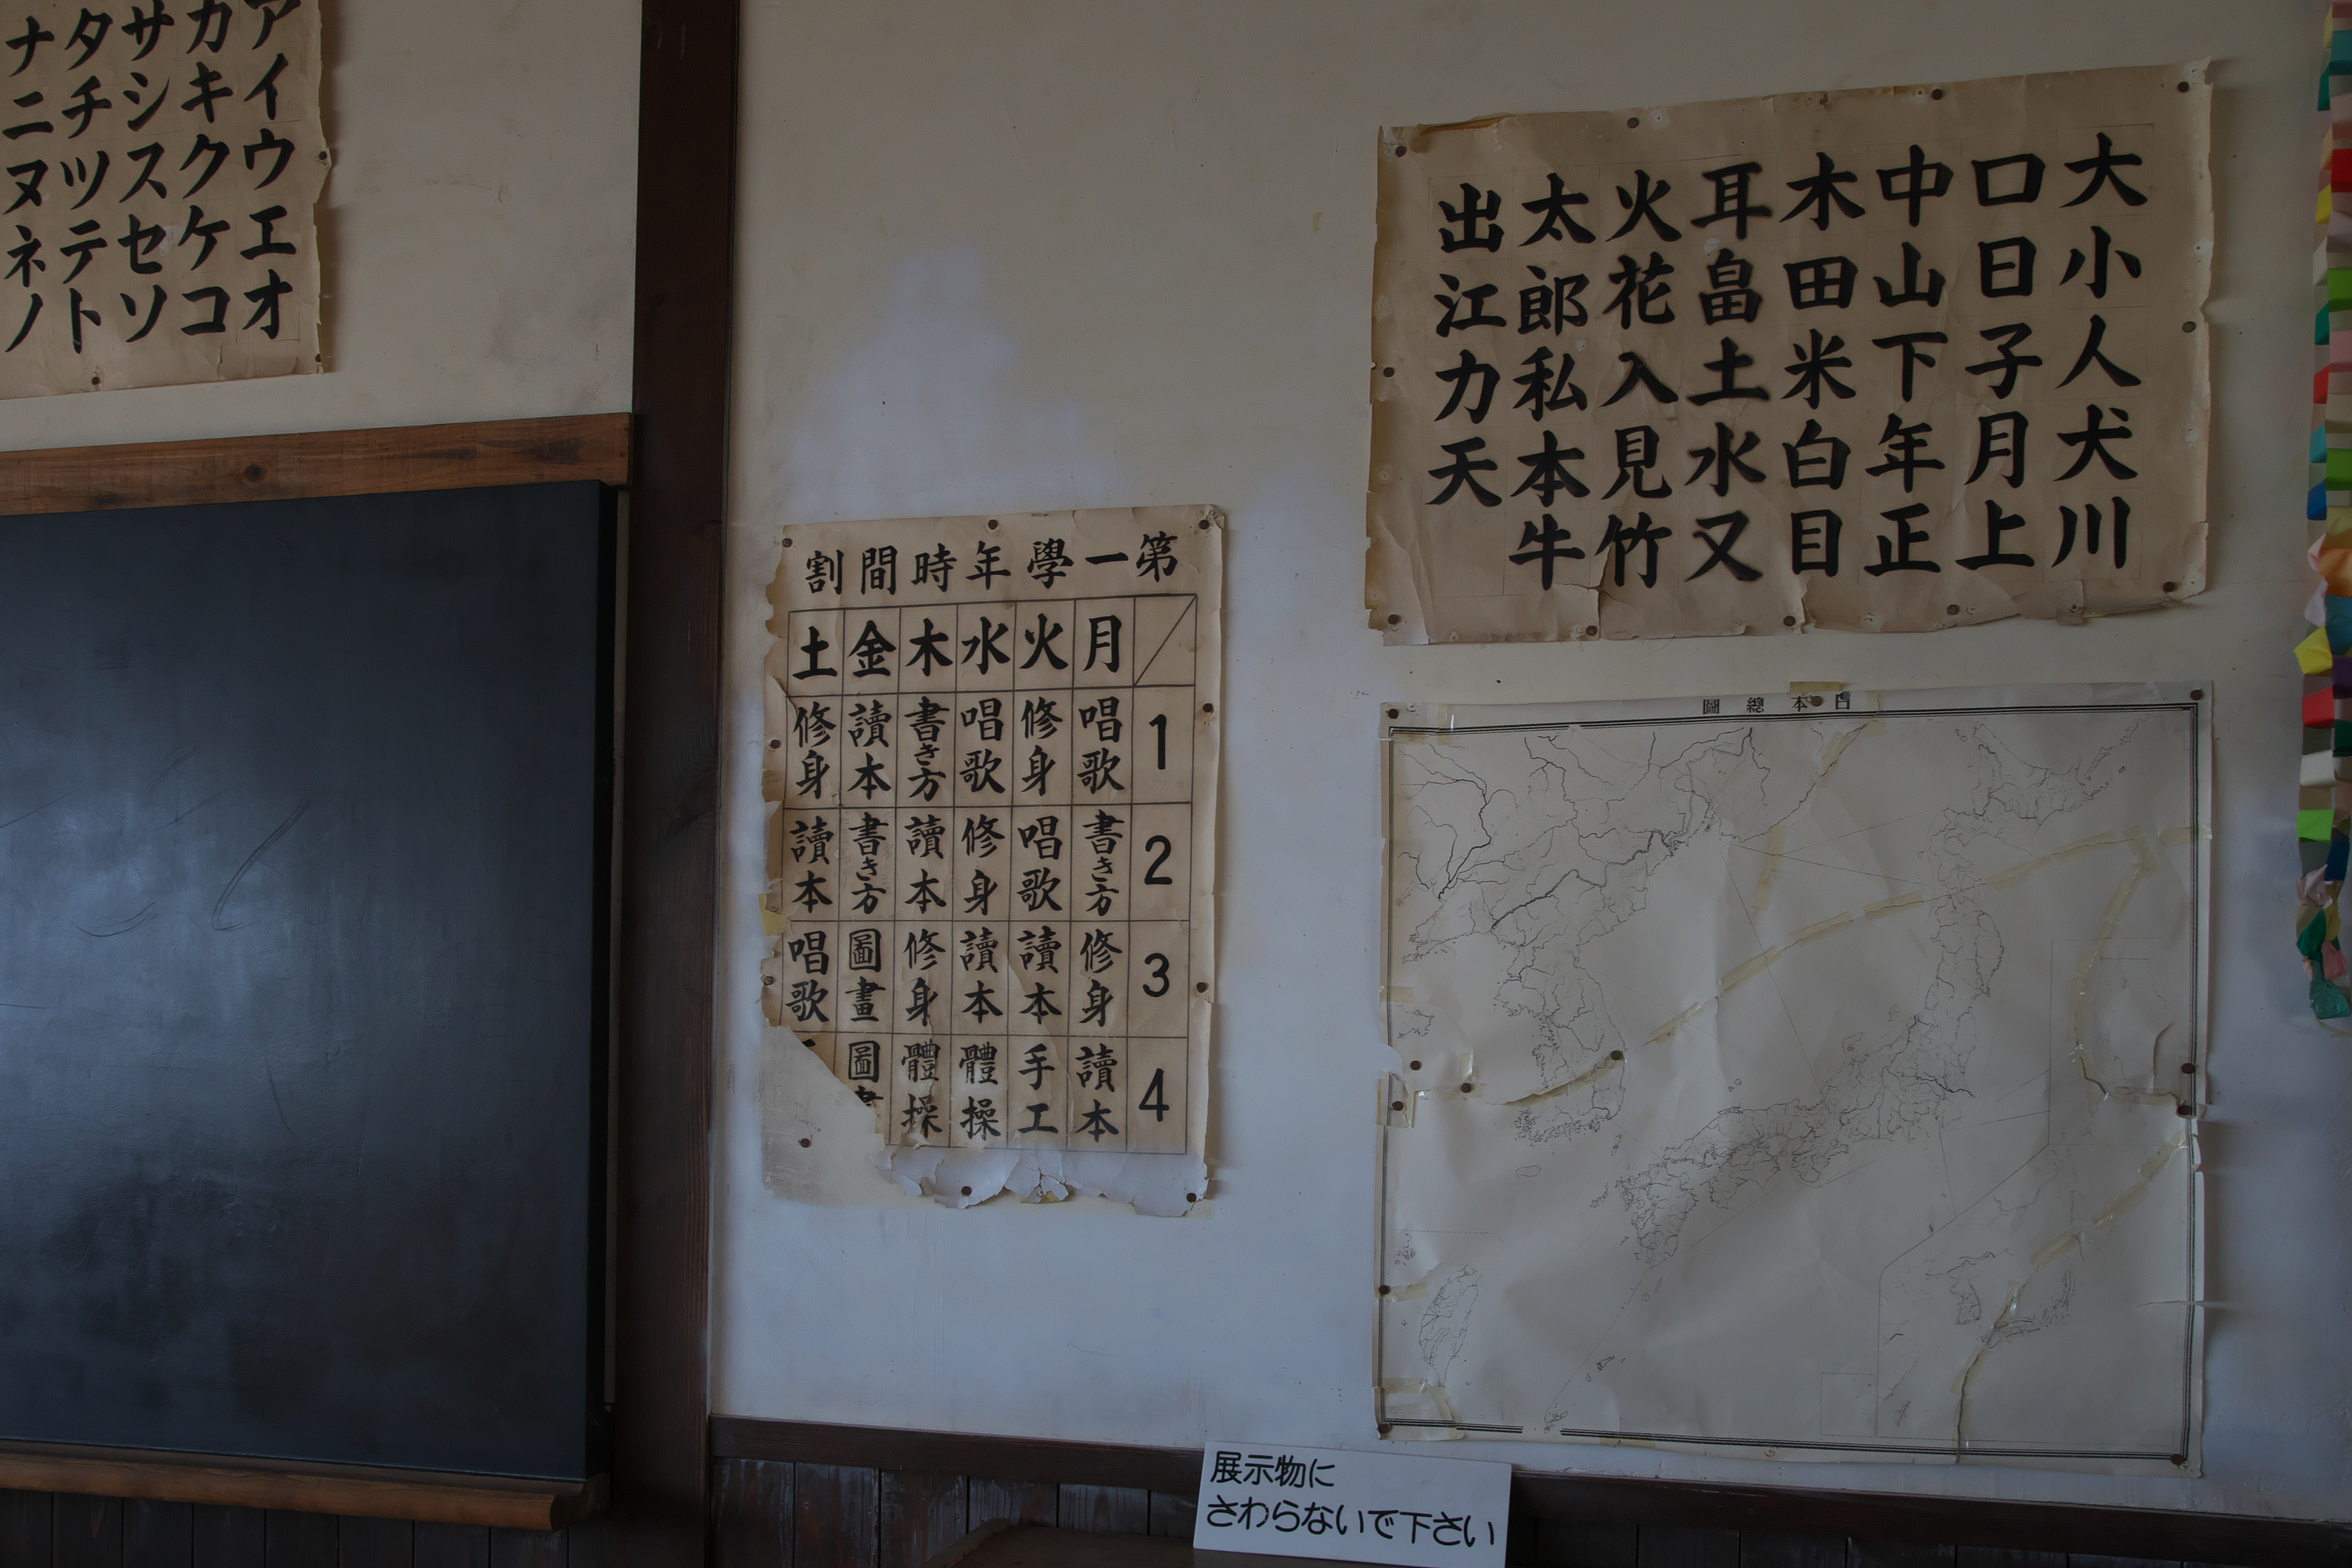 アイウエオ
カキクケコ
サシスセソ
タチツテト
ナニヌネノ
第一學年時間割
月 火 水 木 金 土
1 唱歌 修身 唱歌 書き方 讀本 修身
2 書き方 唱歌 修身 讀本 書き方 讀本
3 修身 讀本 讀本 修身 圖畫 唱歌
4 讀本 手工 體操 體操 圖
大小人犬川
口日子月上
中山下年正
木田米白目
耳畠土水又
火花入見竹
太郎私本牛
出江力天
日本總圖
展示物に
さわらないで下さい